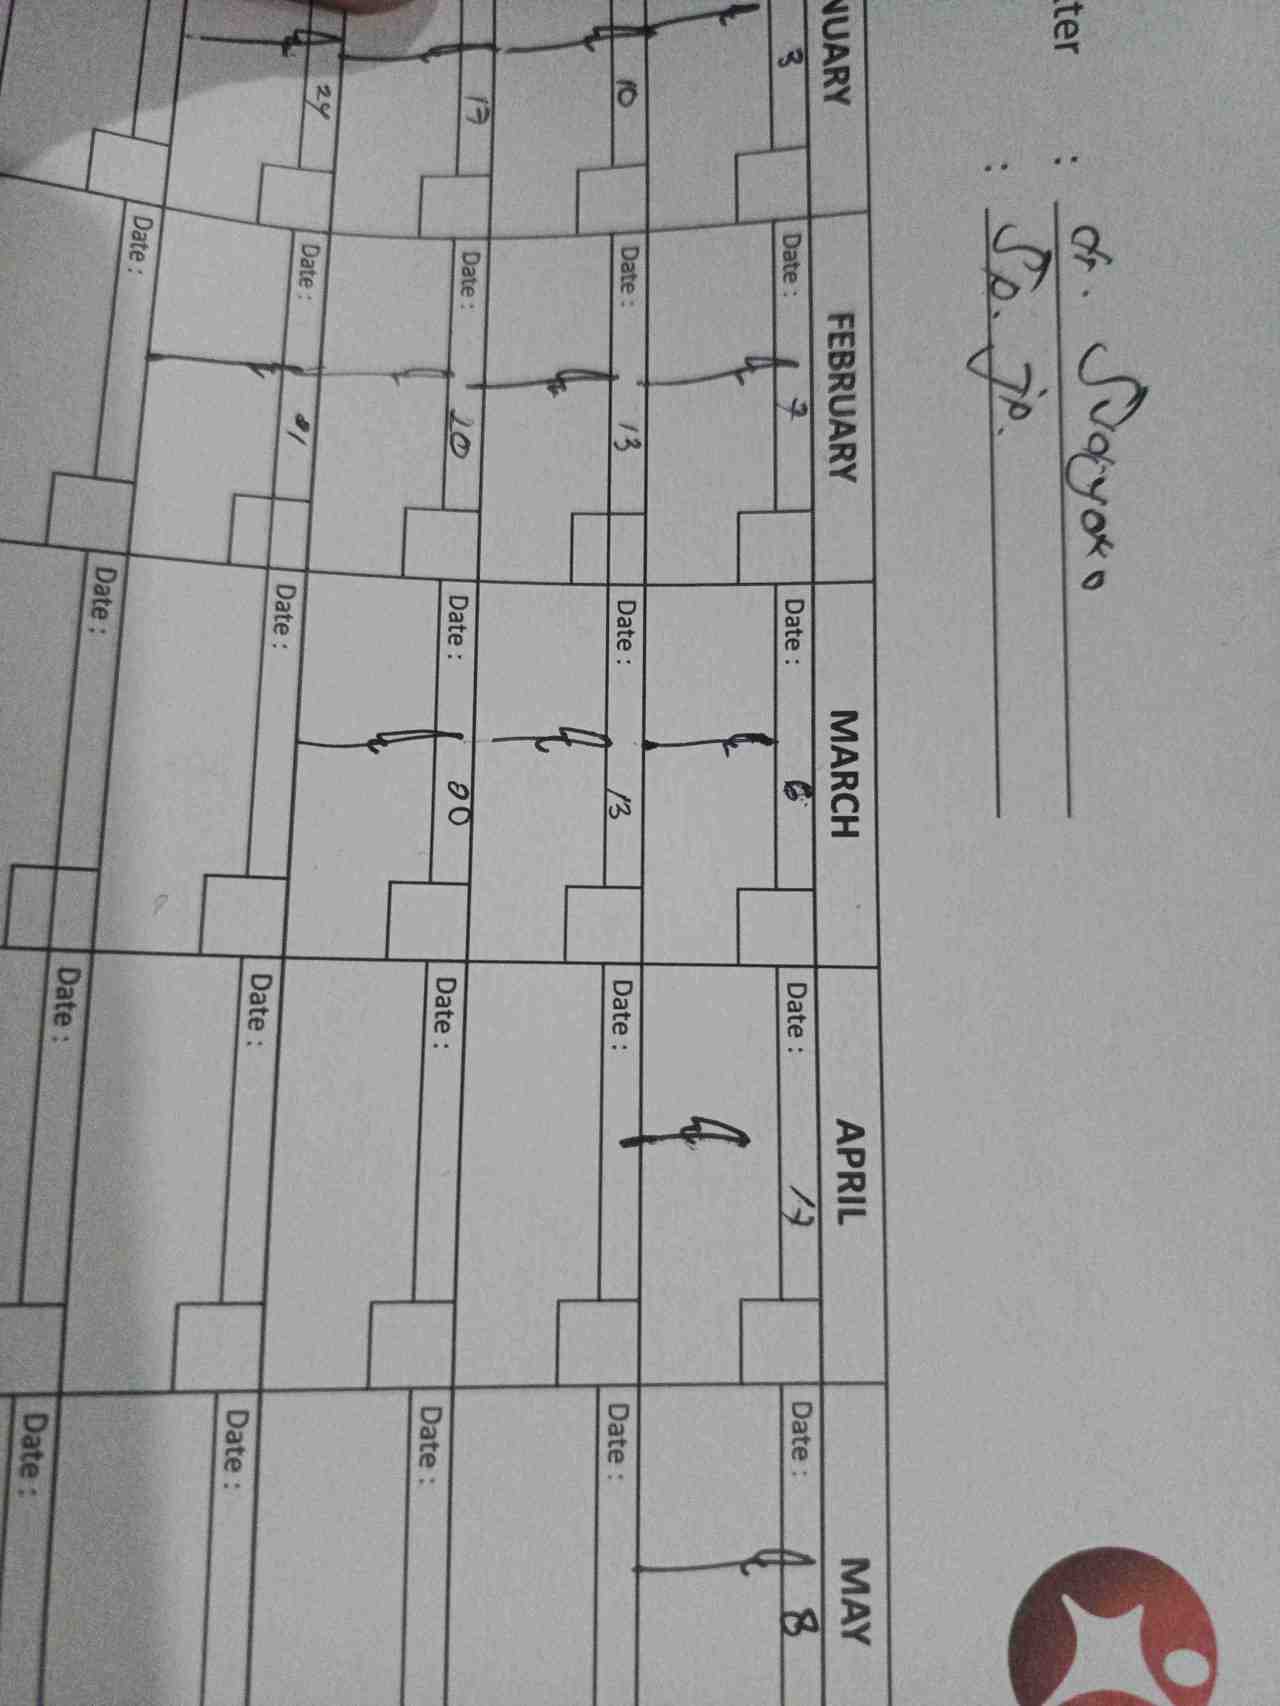 ter : dr. Suryoko
: Sp. Jp.
NUARY FEBRUARY MARCH APRIL MAY
3 Date : 7 Date : 6 Date : 17 Date : 8
10 Date : 13 Date : 13 Date : Date :
17 Date : 20 Date : 20 Date : Date :
24 Date : Date : Date : Date :
Date : Date : Date : Date :